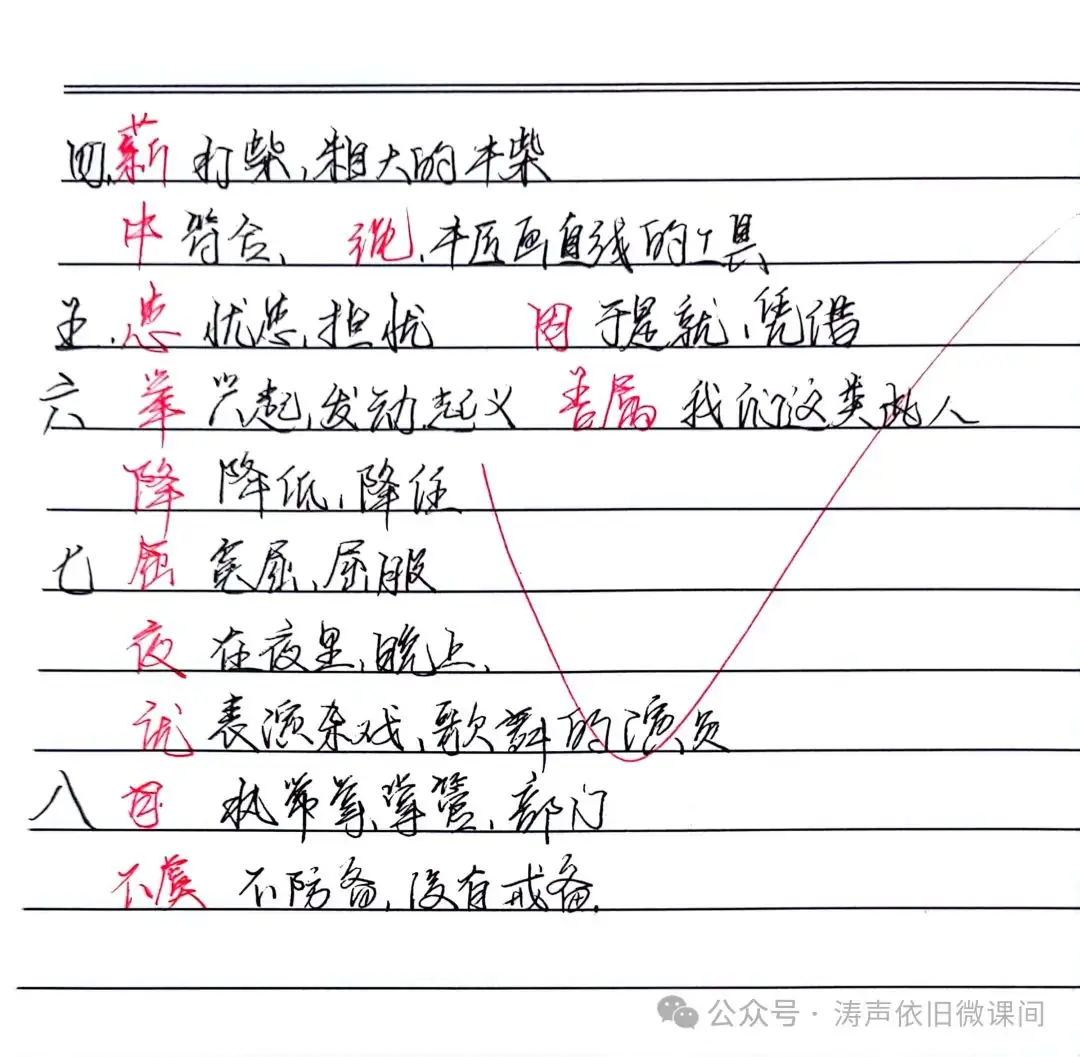 四.薪 打柴,粗大的木柴
中 符合、 绳.木匠画直线的工具
五.患 忧患,担忧 因 于是就,凭借
六 举 兴起,发动起义 若属 我们这类人
降 降低、降住
七 屈 冤屈、屈服
夜 在夜里,晚上、
优 表演杂戏、歌舞的演员
八 司 执掌,掌管,部门
不虞 不防备,没有戒备.
公众号·涛声依旧微课间